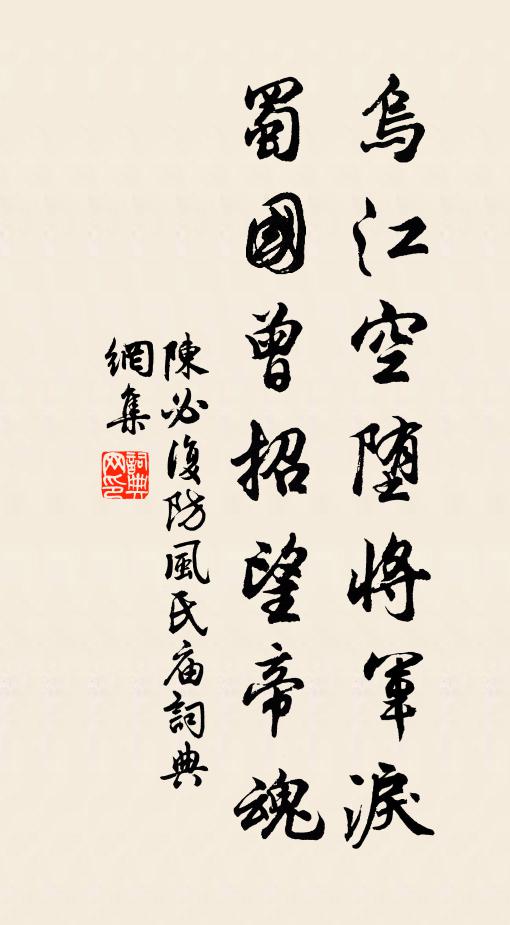 烏江空堕將軍淚
蜀國曾招望帝魂
陳必復防風氏庙詞典
網集
詞典
网印